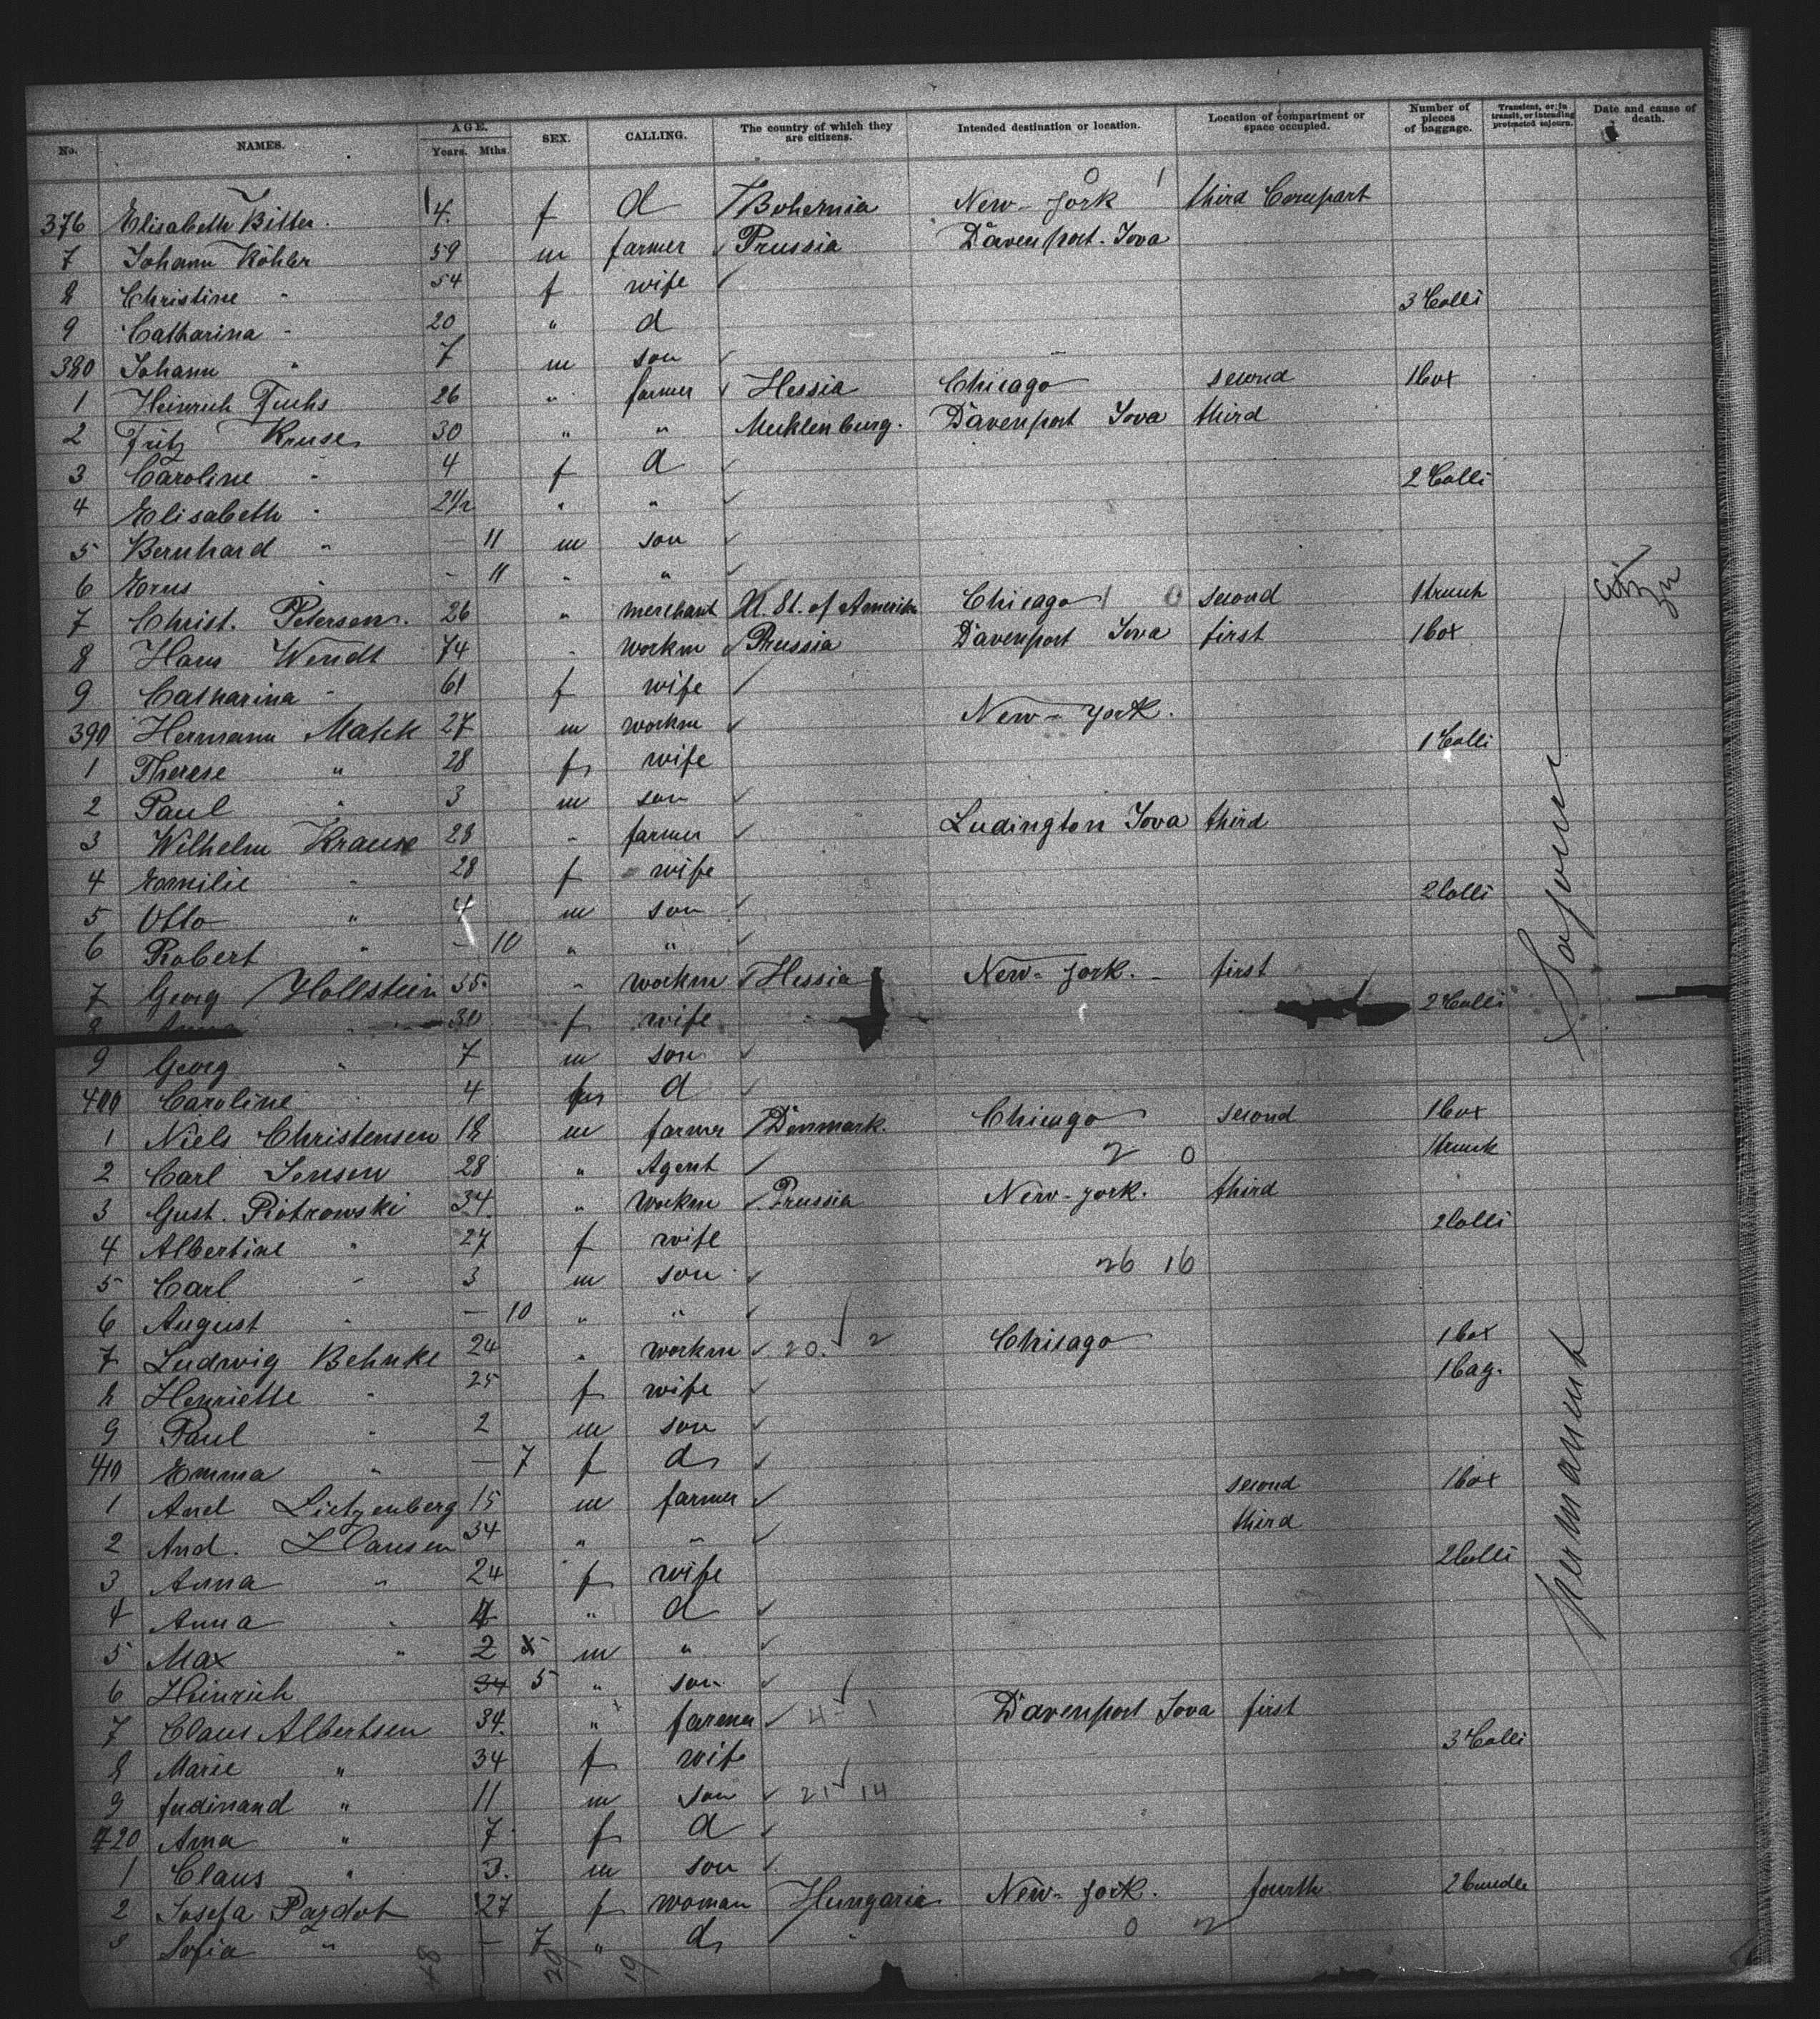 No. NAMES. AGE. Years. Mths. SEX. CALLING. The country of which they are citizens. Intended destination or location. Location of compartment or space occupied. Number of pieces of baggage. Transient, or in transit, or intending protracted sojourn. Date and cause of death.
376 Elisabeth Bitter. 14. f d Bohemia New-York third Compart
7 Johann Köhler 59 m farmer Prussia Davenport. Iova
8 Christine " 54 f wife 3 Colli
9 Catharina " 20 " d
380 Johann " 7 m son
1 Heinrich Fuchs 26 " farmer Hessia Chicago second 1 box
2 Fritz Kruse 30 " " Mecklenburg. Davenport Iova third
3 Caroline " 4 f d 2 Colli
4 Elisabeth " 2 1/2 " "
5 Bernhard " — 11 m son
6 — 11 " "
7 Christ. Petersen. 26 " merchant U. St. of Amerika Chicago 1 0 second 1 trunk
8 Hans Wendt 74 " workm Prussia Davenport Iova first 1 box
9 Catharina " 61 f wife
390 Hermann 27 m workm New-York.
1 Therese " 28 f wife 1 Colli
2 Paul " 3 m son
3 Wilhelm Krause 28 " farmer Ludington Iova third
4 Emilie " 28 f wife
5 Otto " 4 m son 2 Colli
6 Robert " — 10 " "
7 Georg Hollstein 35. " workm Hessia New-York. first
8 Anna " 30 f wife 2 Colli
9 Georg " 7 m son
400 Caroline " 4 f d
1 Niels Christensen 18 m farmer Denmark. Chicago second 1 box
2 Carl Jensen 28 " Agent 2 0 1 trunk
3 Gust. Piotrowski 34. " workm Prussia New-York. third
4 Albertine " 27 f wife 2 Colli
5 Carl " 3 m son 26 16
6 August " — 10 " "
7 Ludwig Behnke 24 " workm 20. 2 Chicago 1 box
8 Henriette " 25 f wife 1 bag.
9 Paul " 2 m son
410 Emma " — 7 f d
1 And Lietzenberg 15 m farmer second 1 box
2 And. Clausen 34 " " third
3 Anna " 24 f wife 2 Colli
4 Anna " 4 " d
5 Max " 2 m "
6 Heinrich 34 5 " son
7 Claus Albertsen 34. " farmer 4 - 1 Davenport Iova first
8 Marie " 34 f wife 3 Colli
9 Ferdinand " 11 m son 21 14
420 Anna " 7 f d
1 Claus " 3. m son
2 Josefa Pazdot 27 f woman Hungaria New-York. fourth 2 bundle
3 Sofia " — 7 " d 0 2
48 29 19
Sojourn
permanent